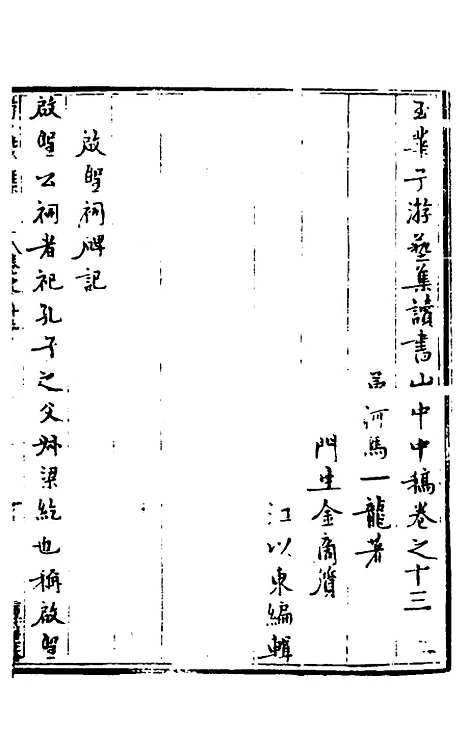 玉華子游藝集讀書山中中稿卷之十三
孟河馬一龍著
門生金啇質
江以東編輯
啟聖祠碑記
啟聖公祠者祀孔子之父叔梁紇也稱啟聖